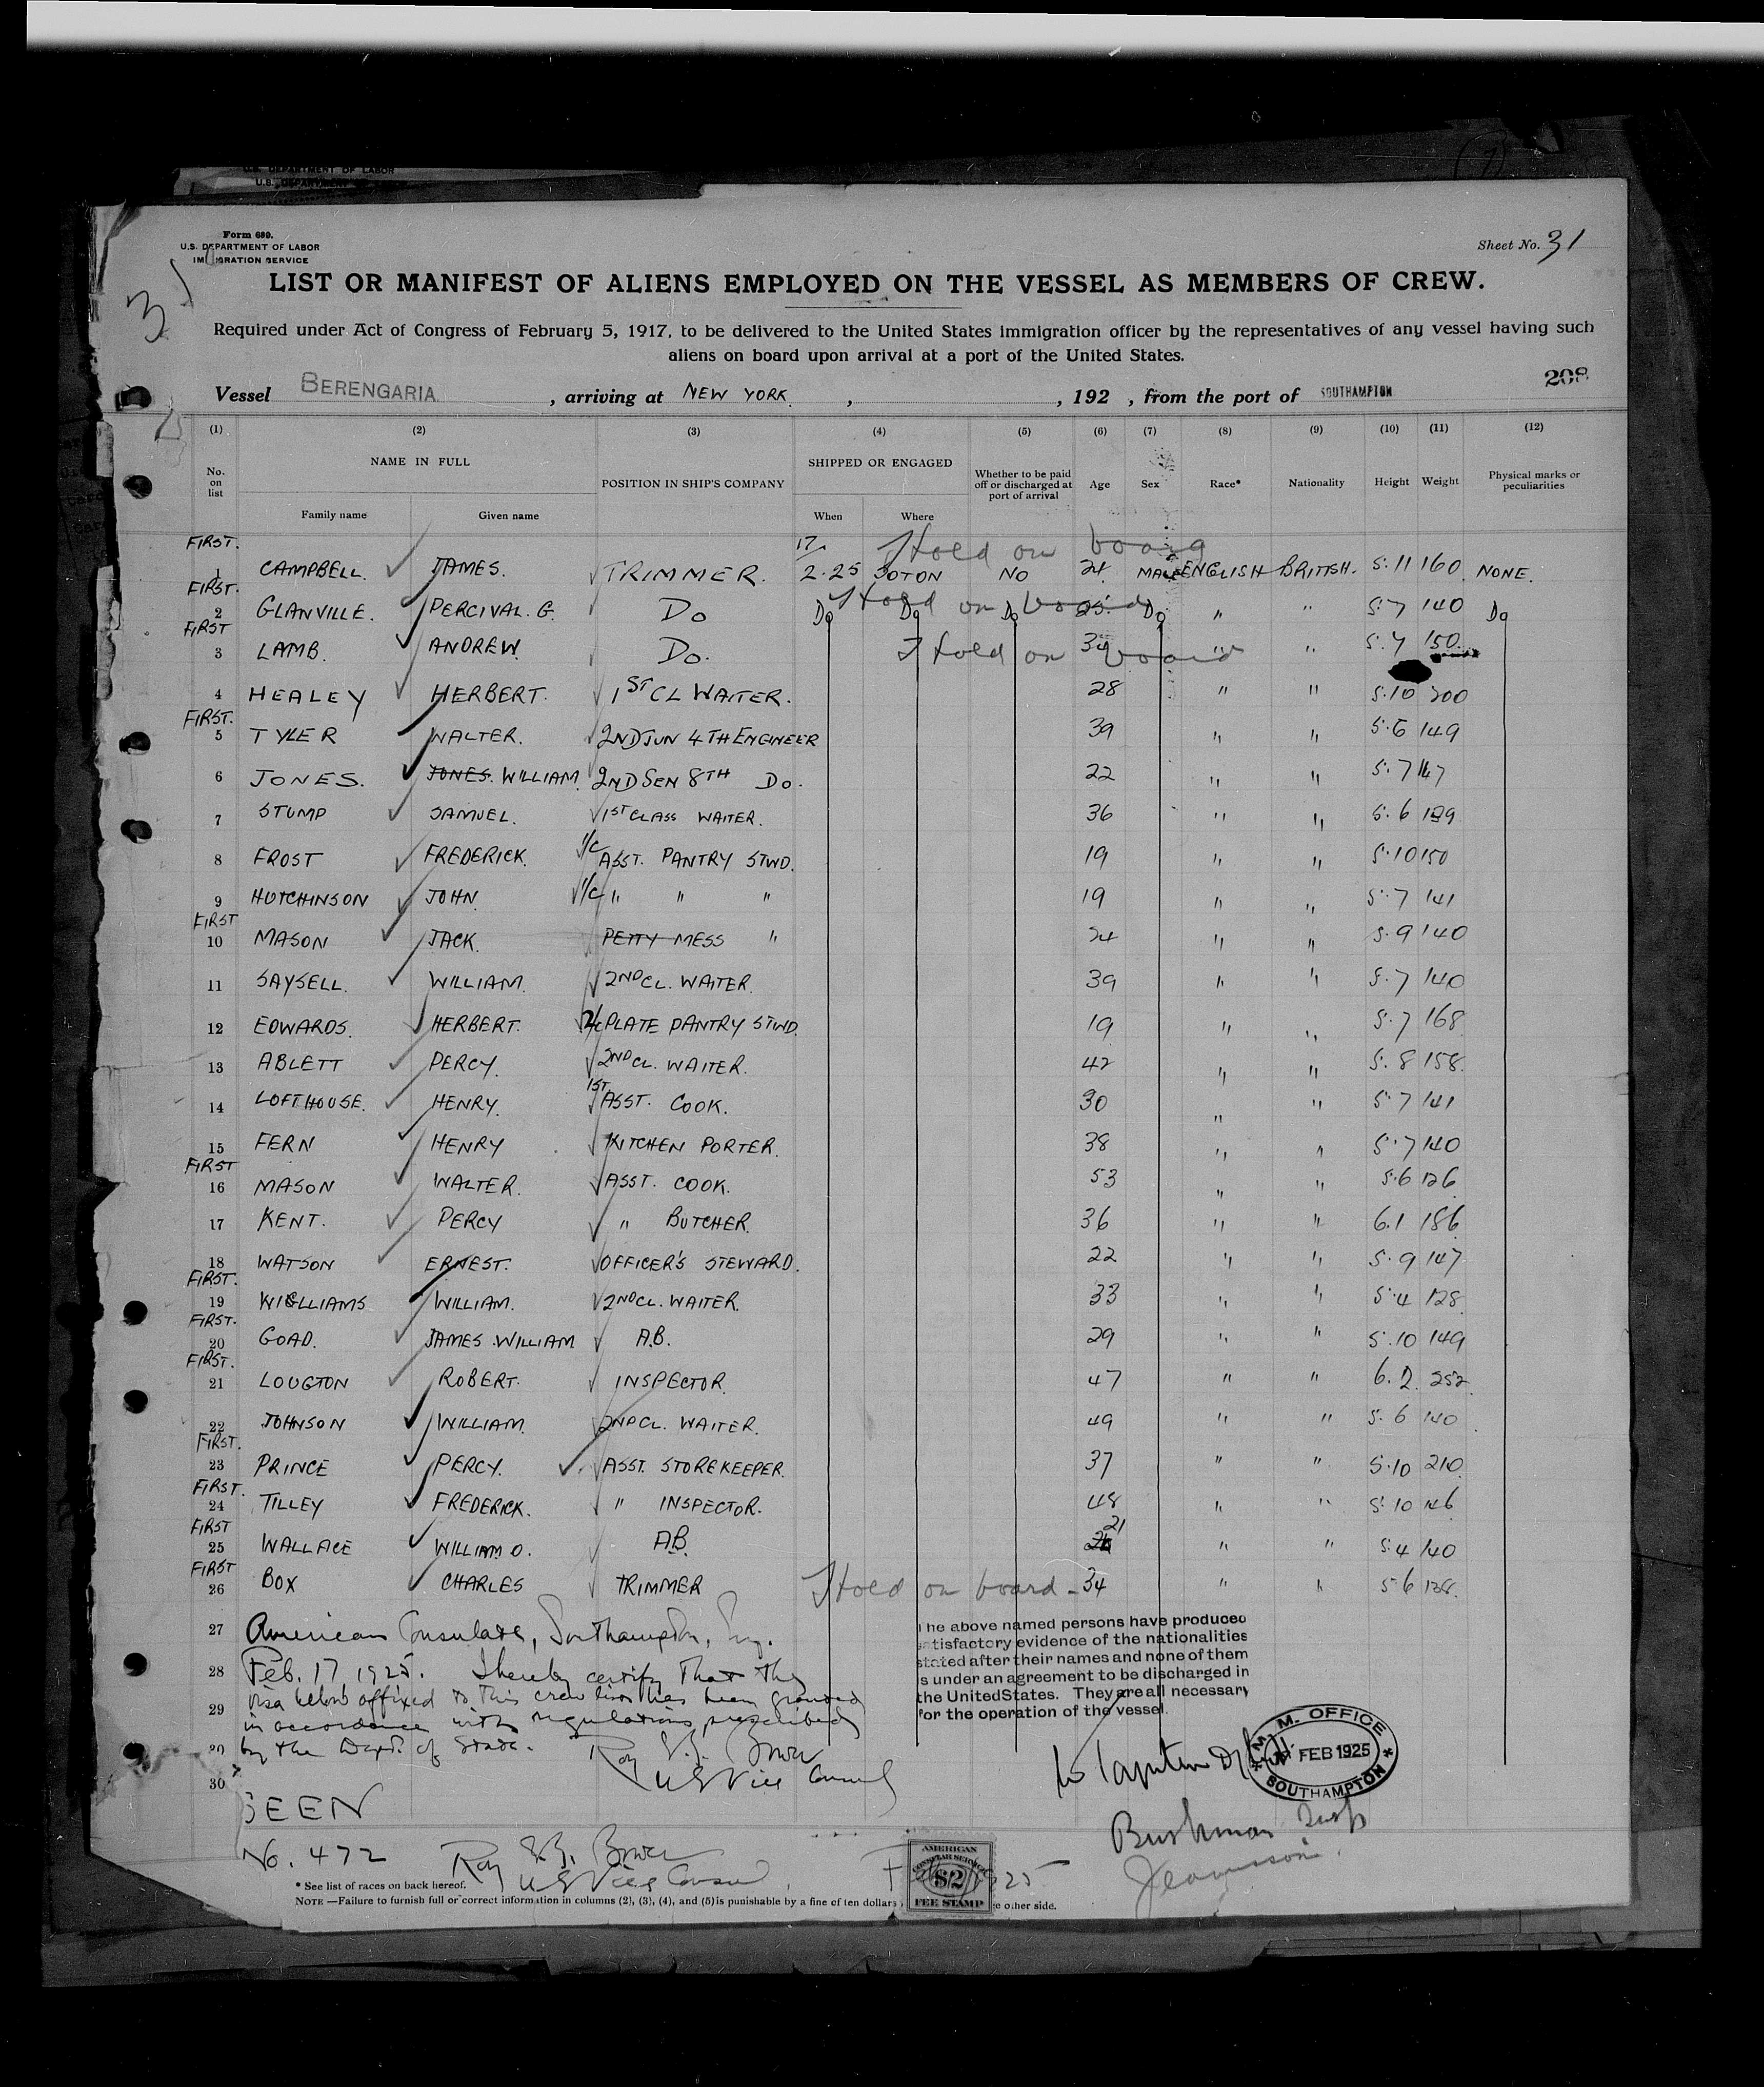 U.S. DEPARTMENT OF LABOR
U.S. DEPARTMENT OF LABOR
Form 689.
U.S. DEPARTMENT OF LABOR
IMMIGRATION SERVICE
Sheet No. 31
31
LIST OR MANIFEST OF ALIENS EMPLOYED ON THE VESSEL AS MEMBERS OF CREW.
Required under Act of Congress of February 5, 1917, to be delivered to the United States immigration officer by the representatives of any vessel having such
aliens on board upon arrival at a port of the United States.
208
Vessel BERENGARIA , arriving at NEW YORK , , 192 , from the port of SOUTHAMPTON
(1) (2) (3) (4) (5) (6) (7) (8) (9) (10) (11) (12)
No. on list NAME IN FULL POSITION IN SHIP'S COMPANY SHIPPED OR ENGAGED Whether to be paid off or discharged at port of arrival Age Sex Race* Nationality Height Weight Physical marks or peculiarities
Family name Given name When Where
FIRST. 17 Hold on board
1 CAMPBELL. JAMES. TRIMMER. 2.25 SOTON NO 24 MALE ENGLISH BRITISH. 5.11 160 NONE.
FIRST. Hold on board
2 GLANVILLE. PERCIVAL. G. DO Do Do Do 25 Do " " 5.7 140 Do
FIRST Hold on board
3 LAMB. ANDREW. DO. 34 " " 5.7 150
4 HEALEY HERBERT. 1ST CL WAITER. 28 " " 5.10 200
FIRST.
5 TYLER WALTER. 2ND JUN 4TH ENGINEER 39 " " 5.6 149
6 JONES. JONES. WILLIAM. 2ND SEN 8TH DO. 22 " " 5.7 147
7 STUMP SAMUEL. 1ST CLASS WAITER. 36 " " 5.6 139
8 FROST FREDERICK. 1/C ASST. PANTRY STWD. 19 " " 5.10 150
9 HUTCHINSON JOHN 1/C " " " 19 " " 5.7 141
FIRST
10 MASON JACK. PETTY MESS " 24 " " 5.9 140
11 SAYSELL. WILLIAM. 2ND CL. WAITER. 39 " " 5.7 140
12 EDWARDS. HERBERT. 2/C PLATE PANTRY STWD. 19 " " 5.7 168
13 ABLETT PERCY. 2ND CL. WAITER. 42 " " 5.8 158.
14 LOFTHOUSE. HENRY. 1ST ASST. COOK. 30 " " 5.7 141
15 FERN HENRY KITCHEN PORTER. 38 " " 5.7 140
FIRST
16 MASON WALTER. ASST. COOK. 53 " " 5.6 126
17 KENT. PERCY " BUTCHER. 36 " " 6.1 186
18 WATSON ERNEST. OFFICER'S STEWARD. 22 " " 5.9 147
FIRST.
19 WILLIAMS WILLIAM. 2ND CL. WAITER. 33 " " 5.4 128
FIRST.
20 GOAD. JAMES WILLIAM A.B. 29 " " 5.10 149
FIRST.
21 LOUGTON ROBERT. INSPECTOR. 47 " " 6.2 252
22 JOHNSON WILLIAM. 2ND CL. WAITER. 49 " " 5.6 140
FIRST.
23 PRINCE PERCY. ASST. STOREKEEPER. 37 " " 5.10 210
FIRST.
24 TILLEY FREDERICK. " INSPECTOR. 48 " " 5.10 146
FIRST
25 WALLACE WILLIAM O. A.B. 21 " " 5.4 140
FIRST
26 BOX CHARLES TRIMMER Hold on board - 34 " " 5.6 138.
27 American Consulate, Southampton, Eng.
28 Feb. 17 1925. I hereby certify that the
visa below affixed to this crew list has been granted
29 in accordance with regulations prescribed
by the Dept. of State.
30 Roy Bower
US Vice Consul
The above named persons have produced
satisfactory evidence of the nationalities
stated after their names and none of them
is under an agreement to be discharged in
the United States. They are all necessary
for the operation of the vessel.
M.M. OFFICE
FEB 1925
SOUTHAMPTON
SEEN
No. 472 Roy Bower
US Vice Consul
1925
AMERICAN
CONSULAR SERVICE
$2
FEE STAMP
* See list of races on back hereof.
NOTE —Failure to furnish full or correct information in columns (2), (3), (4), and (5) is punishable by a fine of ten dollars e other side.